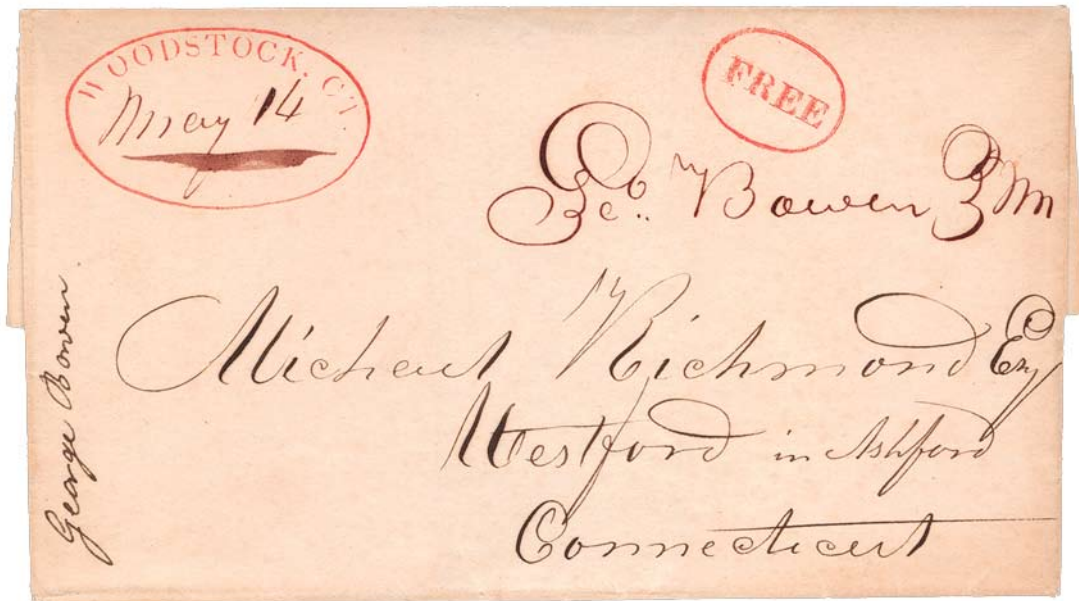 WOODSTOCK. CT.
May 14
FREE
Geo. Bowen PM
Micheal Richmond Esq
Westford in Ashford
Connecticut
George Bowen